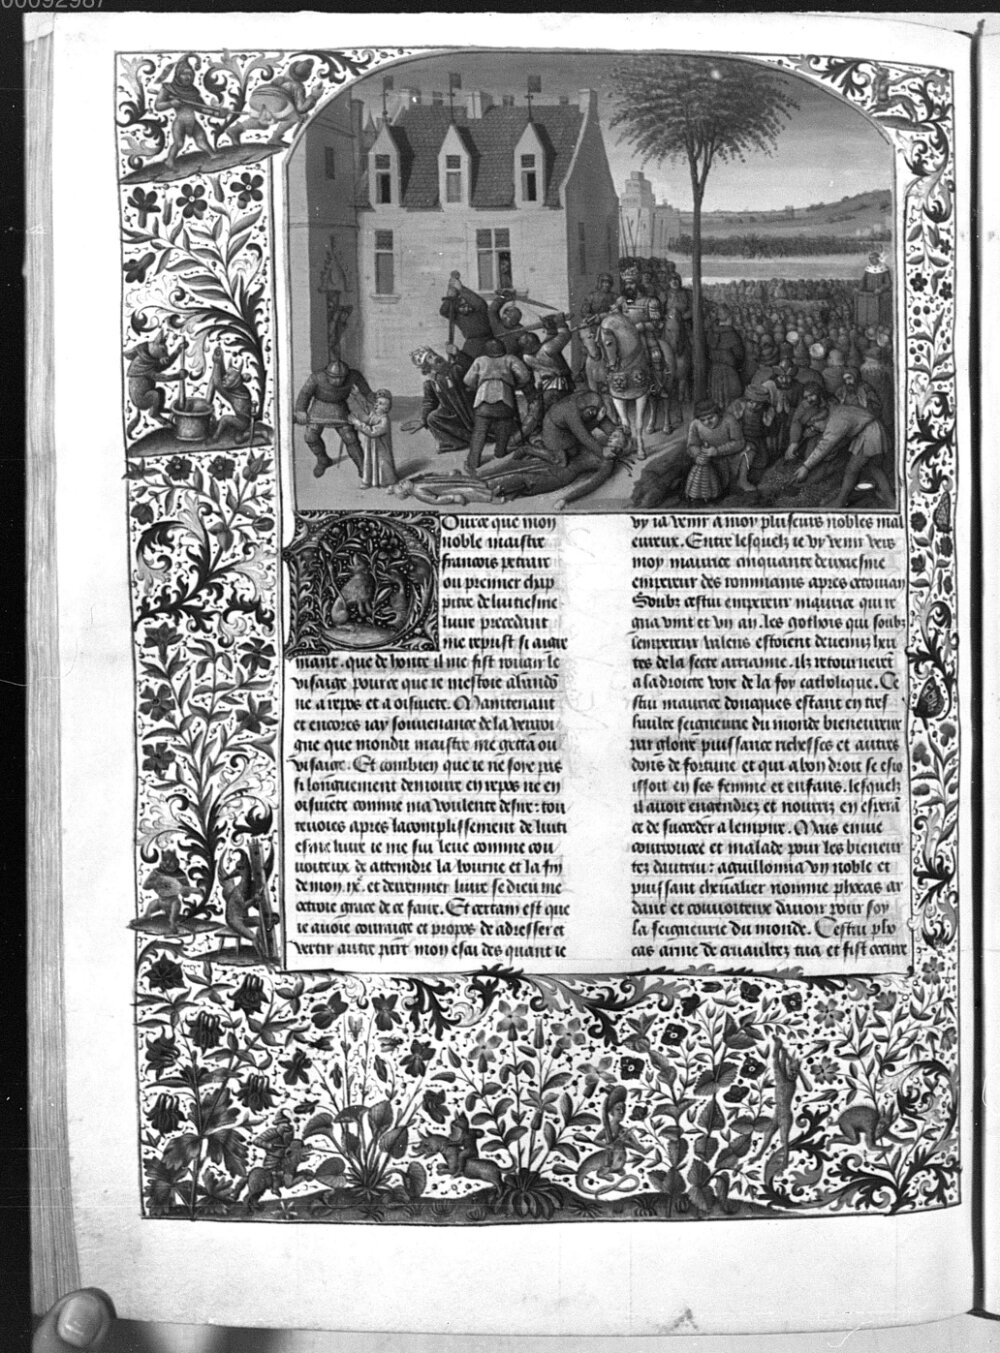 00092987
Ource que mon
noble maistre
francois petrac
ou premier chap
pitre de luitiesme
livre precedent
me reprist si aigre
ment. que de honte il me fist rougir le
visaige pource que ie mestoie abando
ne a repos et a oisivete. Maintenant
et encores iay souvenance de la vergoi
gne que mondit maistre me getta ou
visaige. Et combien que ie ne soye pas
si longuement demoure en repos ne en
oisivete comme ma voulente desire: tou
tevoies apres lacomplissement de luiti
esme livre ie me sui leve comme cou
voiteux de attendre la bourne et la fin
de mon .ix.e et derrennier livre se dieu me
octroie grace de ce faire. Et certain est que
ie avoie couraige et propos de adresser et
vertir autre part mon escu des quant ie
vy ia venir a moy pluseurs nobles mal
eureux. Entre lesquelz ie vy venir vers
moy maurice cinquante deuxiesme
empereur des rommains apres octouian
Soubz cestui empereur maurice qui re
gna vint et un an. les gothois qui soubz
lempereur valens estoient devenuz here
tes de la secte arrianne. ilz retournerent
a la droicte voye de la foy catholique. Ce
stui maurice doncques estant en tres
haulte seigneurie du monde bieneureux
par gloire puissance richesses et autres
dons de fortune et qui a bon droit se esio
issoit en ses femme et enfans. lesquelz
il avoit engendrez et nourriz en espera
ce de succeder a lempire. Mais envie
courroucee et malade pour les bieneur
tez dautrui: aguillonna un noble et
puissant chevalier nomme phocas ar
dant et couvoiteux davoir pour soy
la seigneurie du monde. Cestui pho
cas arme de cruaultez tua et fist occire